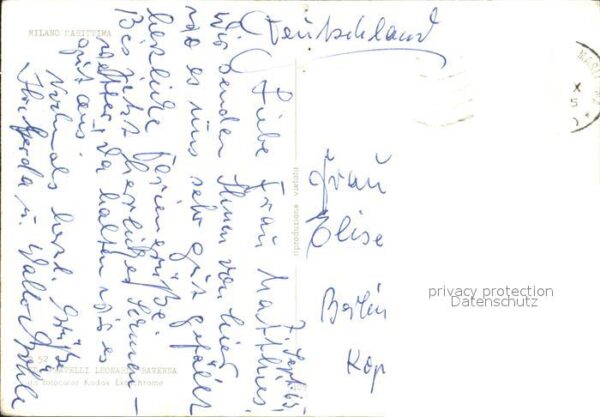 MILANO MARITTIMA
Deutschland
7. Sept. 65
Liebe Frau Matthes.
Wir senden Ihnen von hier
wo es uns sehr gut gefällt
herzliche Feriengrüße.
Bis jetzt herrliches Sommer-
wetter, da halten wir es
gut aus.
Nochmals herzl. Grüße
Ihre Gerda u. Walter
Frau
Elise
Berlin
Köp
riproduzione vietata
52
FRATELLI LEONARDI RAVENNA
da fotocolor Kodak Ektachrome
privacy protection
Datenschutz